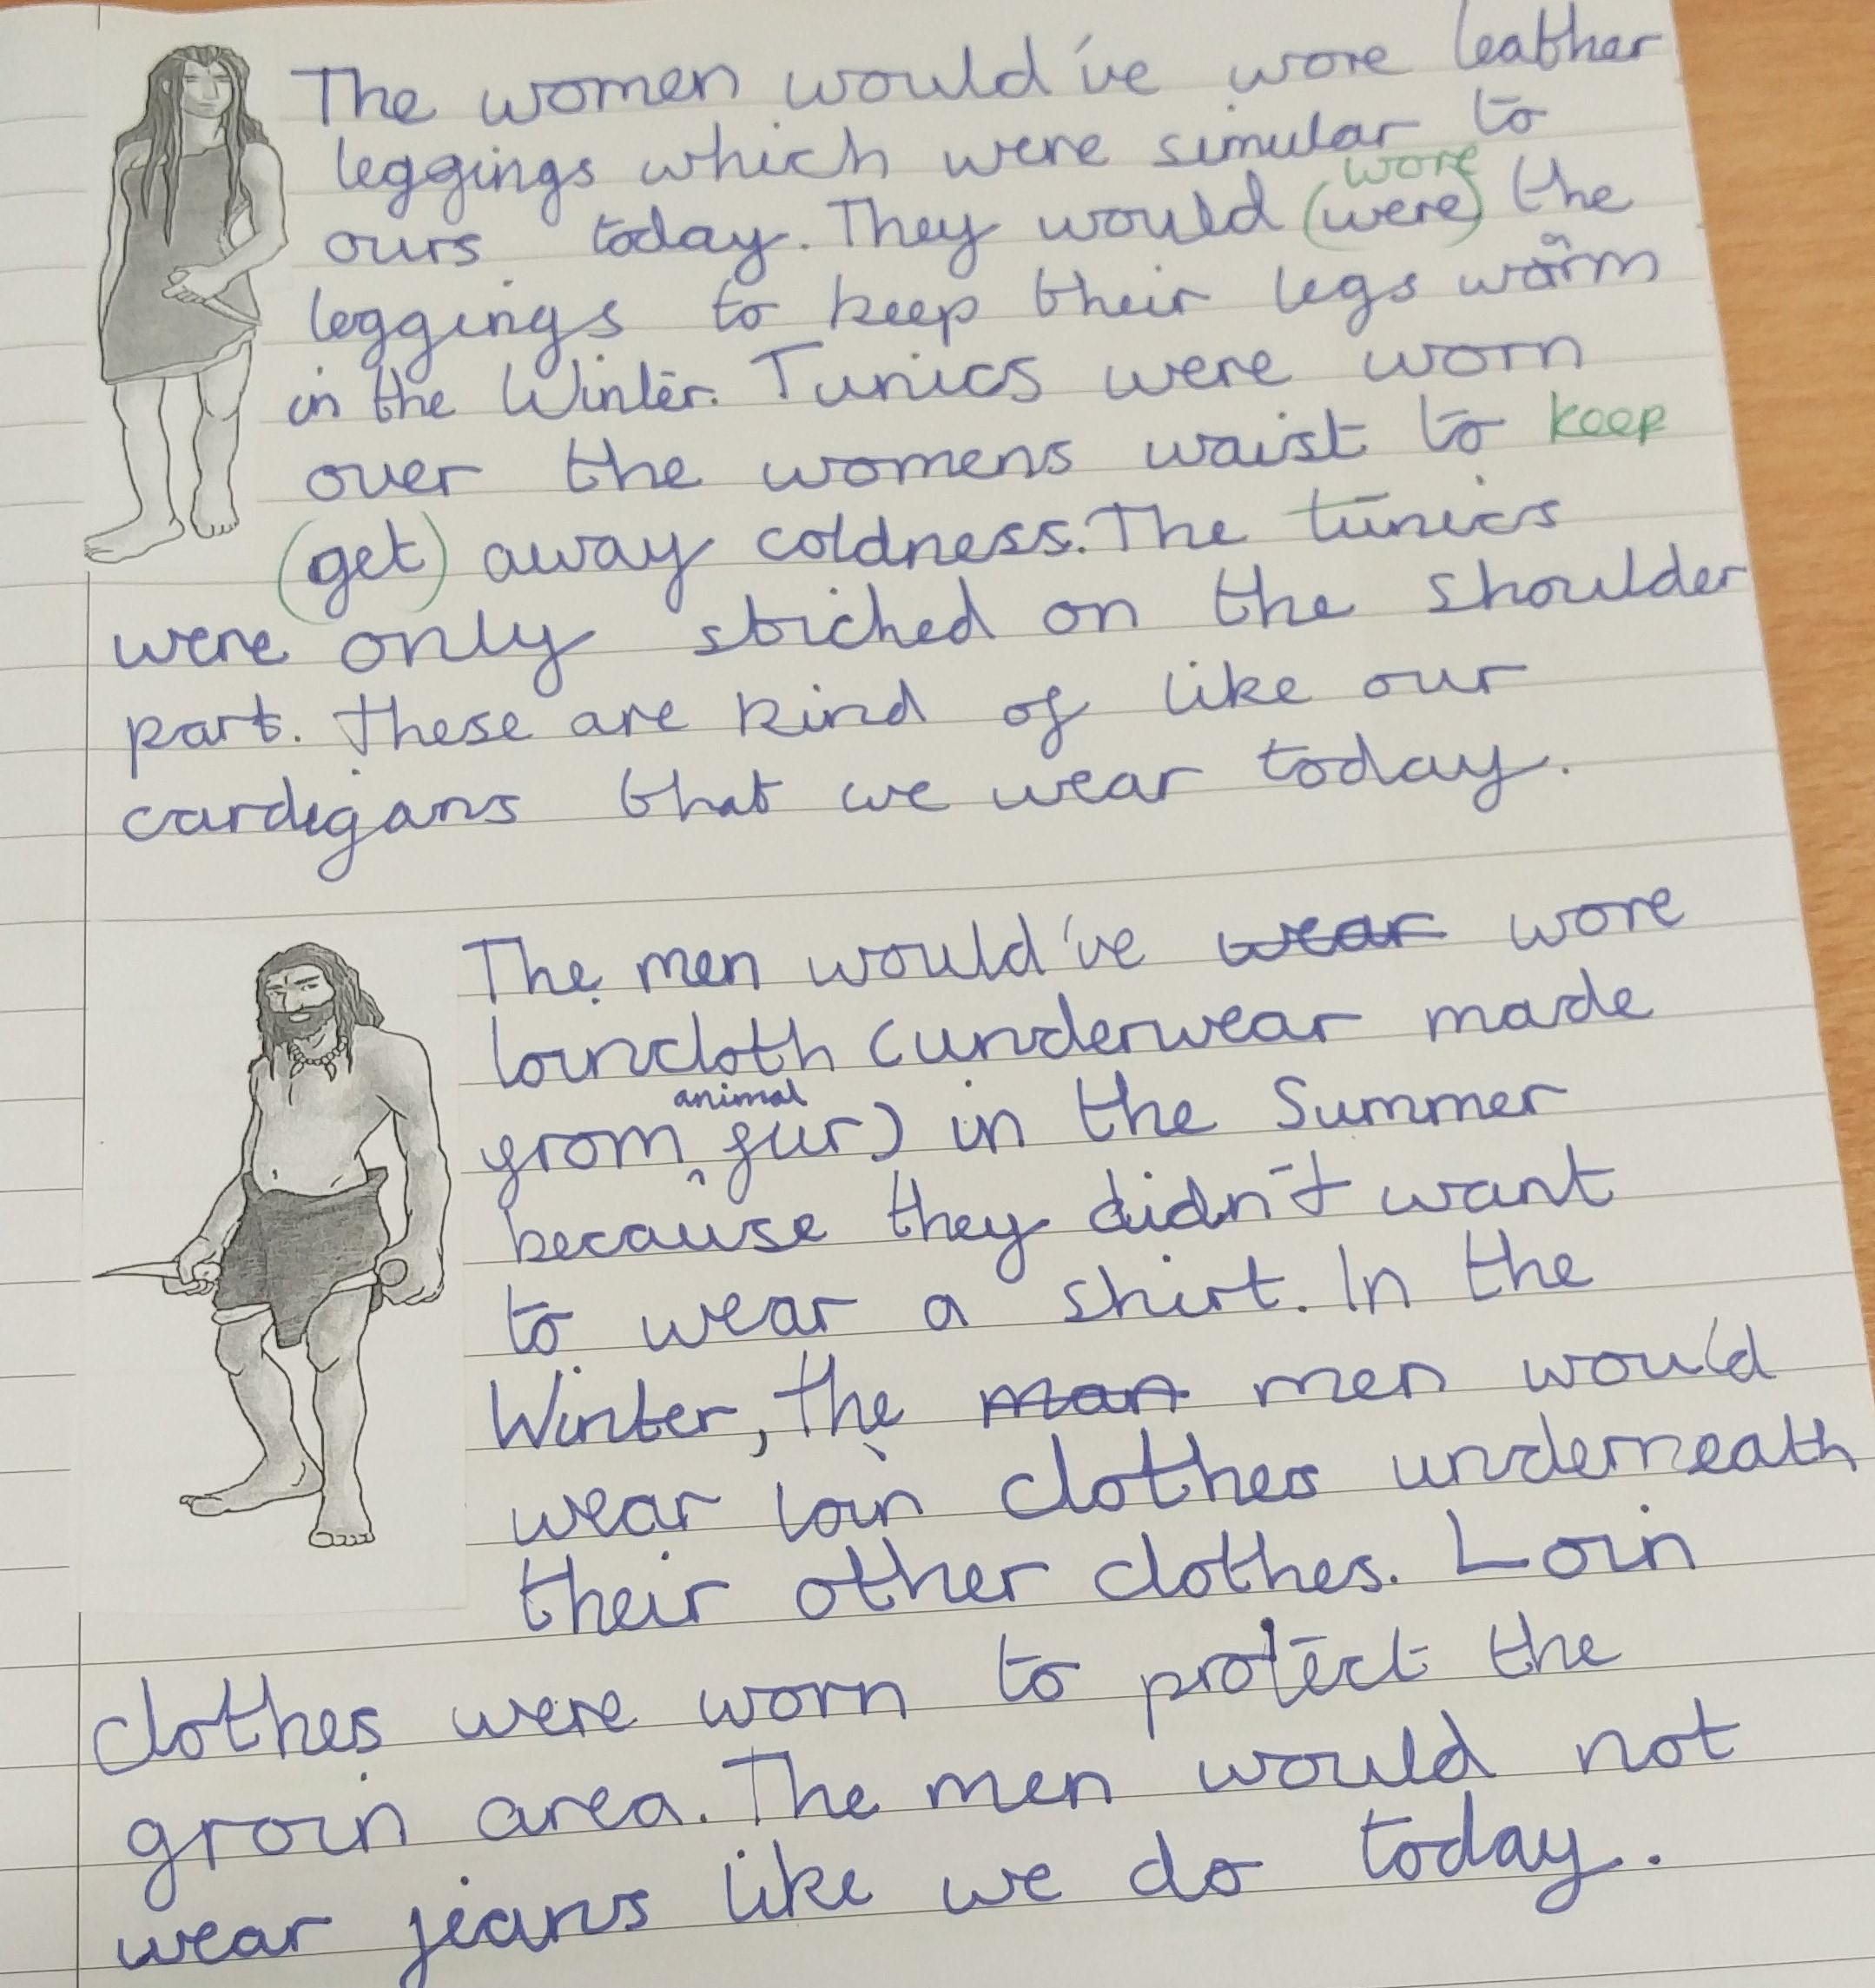 The women would've wore leather
leggings which were simular to
wore
ours today. They would (were) the
leggings to keep their legs warm
in the Winter. Tunics were worn
over the womens waist to keep
(get) away coldness. The tunics
were only stiched on the shoulder
part. These are kind of like our
cardigans that we wear today.
The men would've wear wore
loincloth (underwear made
animal
from ^ fur) in the Summer
because they didn't want
to wear a shirt. In the
Winter, the man men would
wear loin clothes underneath
their other clothes. Loin
clothes were worn to protect the
groin area. The men would not
wear jeans like we do today.